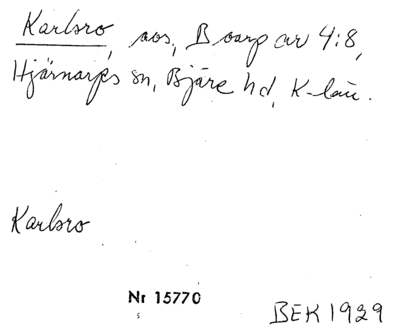 Karlsro, aos, Boarp av 4:8,
Hjärnarps sn, Bjäre hd, K-län.
Karlsro
Nr 15770
BEK 1929